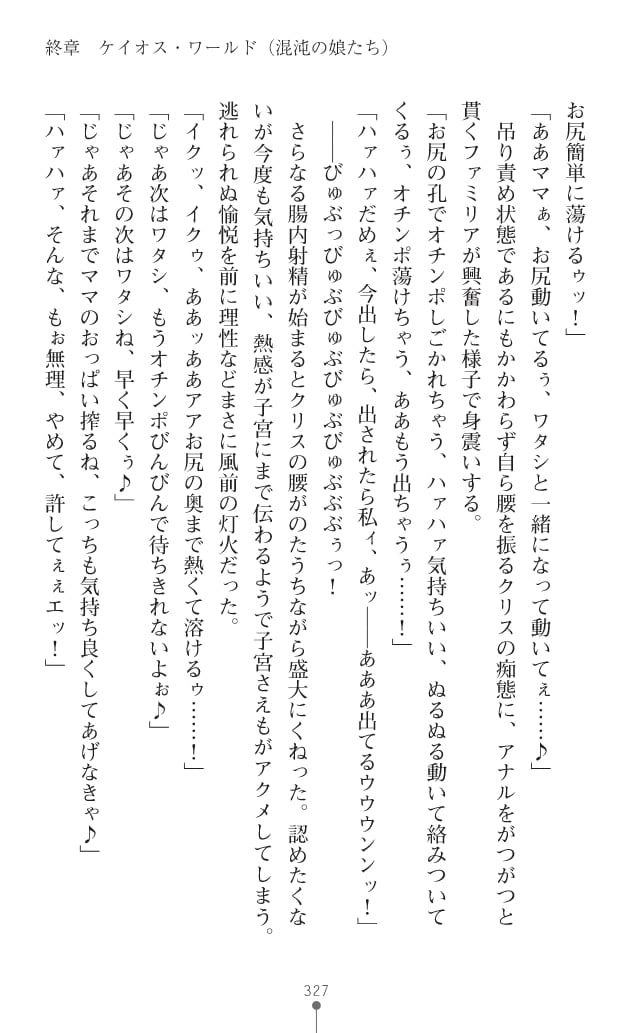 終章　ケイオス・ワールド（混沌の娘たち）
お尻簡単に蕩けるゥッ！」
「ああママぁ、お尻動いてるぅ、ワタシと一緒になって動いてぇ……♪」
　吊り責め状態であるにもかかわらず自ら腰を振るクリスの痴態に、アナルをがつがつと
貫くファミリアが興奮した様子で身震いする。
「お尻の孔でオチンポしごかれちゃう、ハァハァ気持ちいい、ぬるぬる動いて絡みついて
くるぅ、オチンポ蕩けちゃう、ああもう出ちゃうぅ……！」
「ハァハァだめぇ、今出したら、出されたら私ィ、あッ――あああ出てるウウウンンッ！」
　――びゅぶっびゅぶびゅぶびゅぶびゅぶぶぶぅっ！
　さらなる腸内射精が始まるとクリスの腰がのたうちながら盛大にくねった。認めたくな
いが今度も気持ちいい、熱感が子宮にまで伝わるようで子宮さえもがアクメしてしまう。
逃れられぬ愉悦を前に理性などまさに風前の灯火だった。
「イクッ、イクゥ、ああッああアアお尻の奥まで熱くて溶けるゥ……！」
「じゃあ次はワタシ、もうオチンポびんびんで待ちきれないよぉ♪」
「じゃあその次はワタシね、早く早くぅ♪」
「じゃあそれまでママのおっぱい搾るね、こっちも気持ち良くしてあげなきゃ♪」
「ハァハァ、そんな、もぉ無理、やめて、許してぇぇエッ！」
327